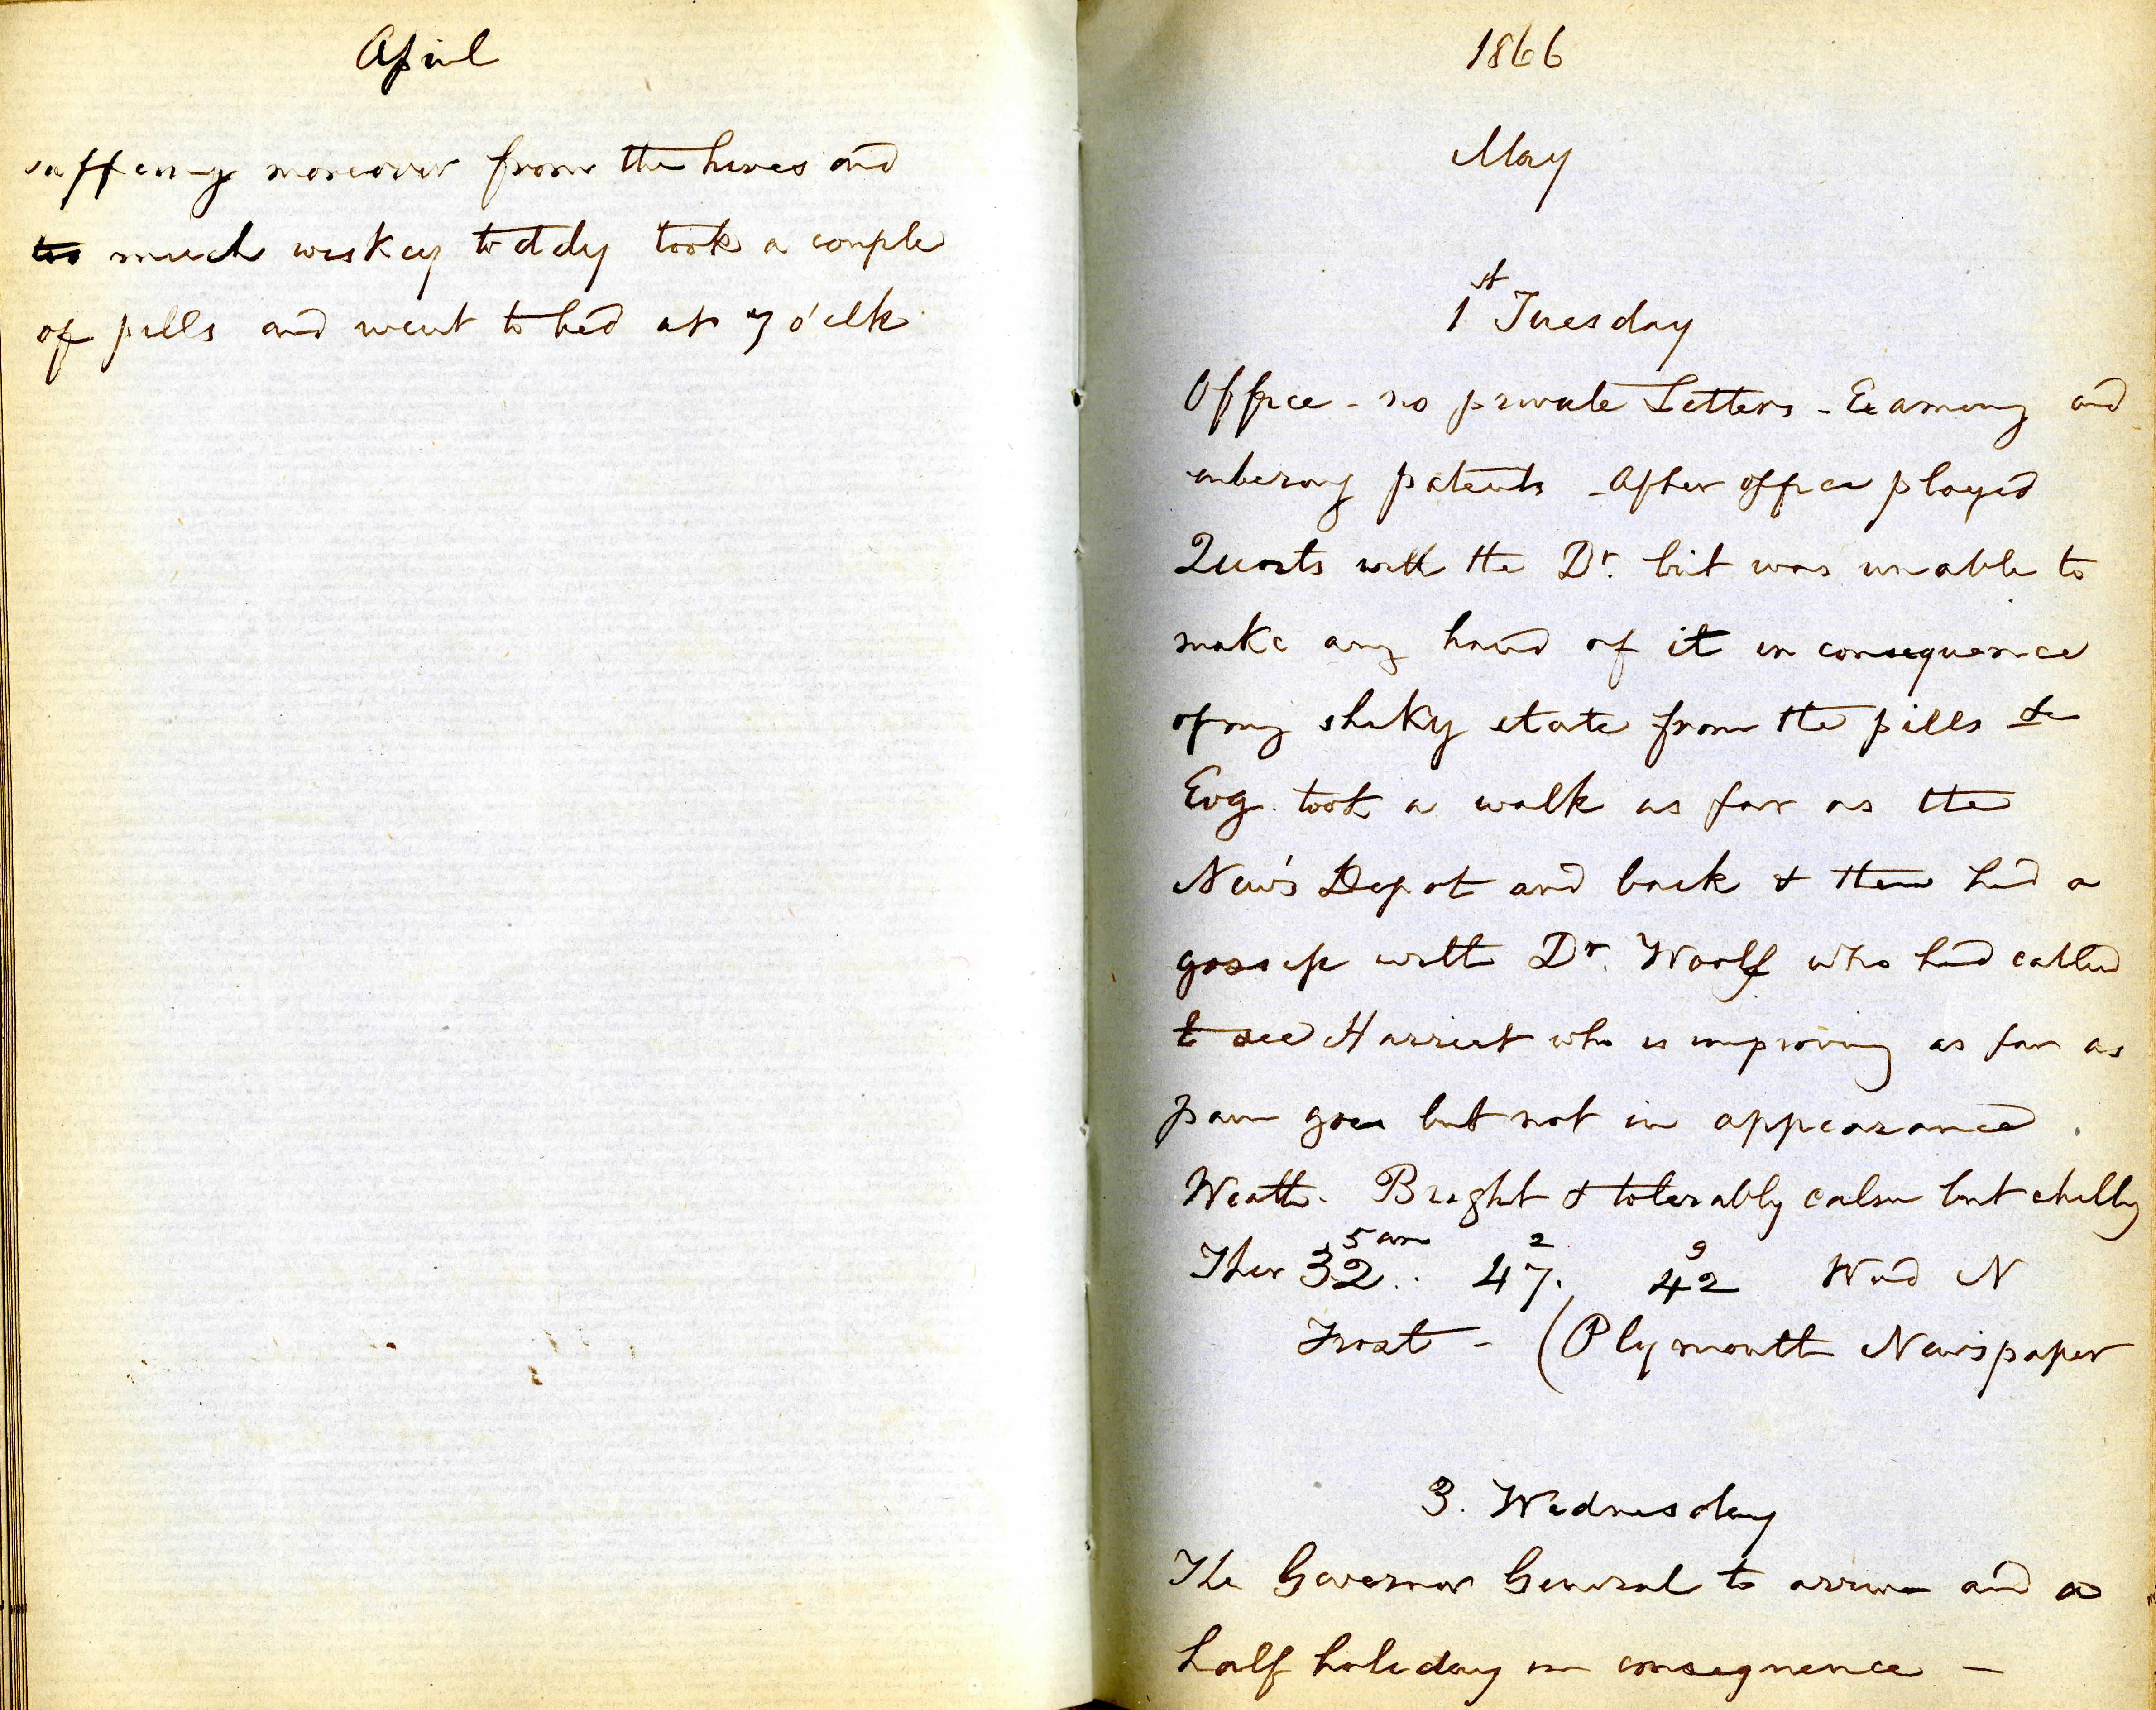 April
suffering moreover from the hives and
too much wiskey toddy took a couple
of pills and went to bed at 7 o'clk
1866
May
1st Tuesday
Office - no private Letters - Examing and
entering patents - After office played
Quoits with the Dr. but was unable to
make any hand of it in consequence
of my shaky state from the pills &c
Evg. took a walk as far as the
New's Depot and back & then had a
gossip with Dr. Woolf who had called
to see Harriet who is improving as far as
pain goes but not in appearance.
Weath. Bright & tolerably calm but chilly
5 am 2 9
Ther 32.. 47. 42 Wind N
Frost - (Plymouth Newspaper
3. Wednesday
The Governor General to arrive and a
half holiday in consequence -